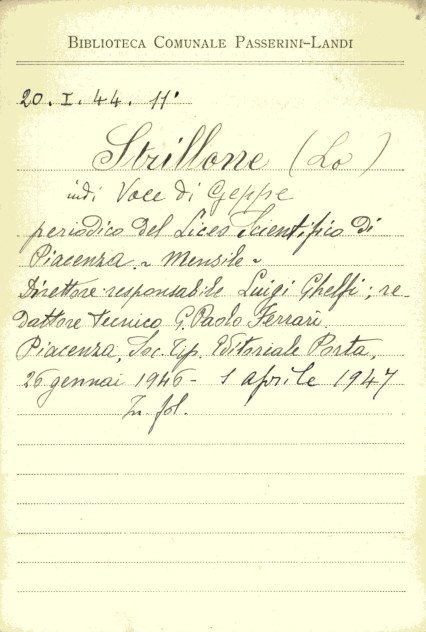 BIBLIOTECA COMUNALE PASSERINI-LANDI
20. I. 44. 11°
Strillone (Lo)
indi Voce di Geppe
periodico del Liceo Scientifico di
Piacenza ~ Mensile ~
Direttore responsabile Luigi Ghelfi; re-
dattore tecnico G. Paolo Ferrari.
Piacenza, Soc. Tip. Editoriale Porta,
26 gennai 1946 - 1 aprile 1947
In fol.